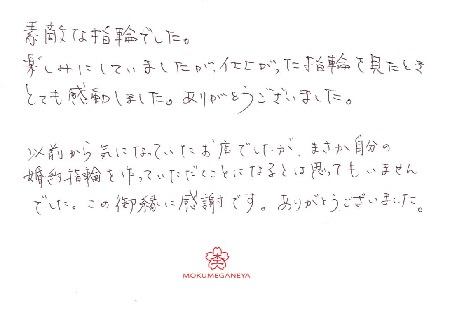 素敵な指輪でした。
楽しみにしていましたが、仕上がった指輪を見たとき
とても感動しました。ありがとうございました。
以前から気になっていたお店でしたが、まさか自分の
婚約指輪を作っていただくことになるとは思ってもいません
でした。この御縁に感謝です。ありがとうございました。
MOKUMEGANEYA